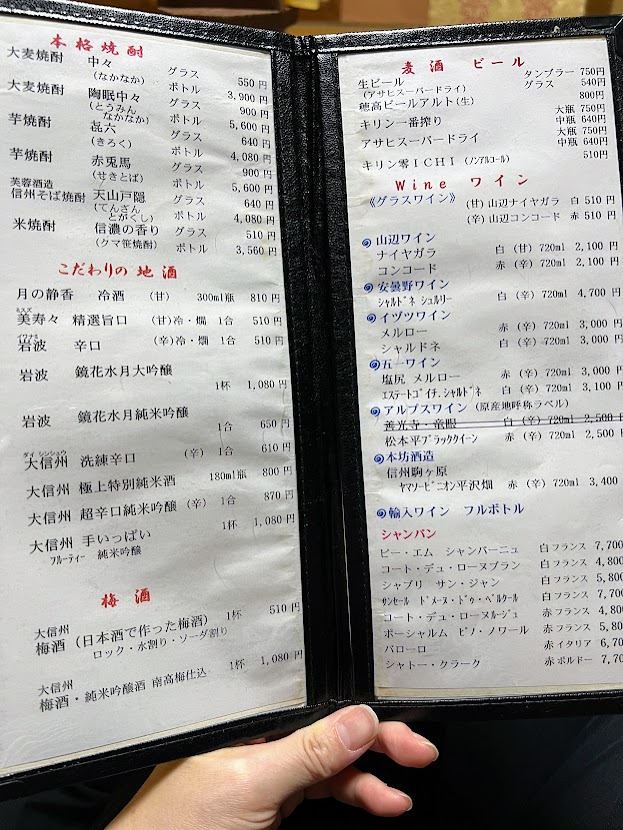 本格焼酎
大麦焼酎 中々 グラス 550円
(なかなか) ボトル 3,900円
大麦焼酎 陶眠中々 グラス 900円
(とうみんなかなか) ボトル 5,600円
芋焼酎 㐂六 グラス 640円
(きろく) ボトル 4,080円
芋焼酎 赤兎馬 グラス 900円
(せきとば) ボトル 5,600円
芙蓉酒造
信州そば焼酎 天山戸隠 グラス 640円
(てんざんとがくし) ボトル 4,080円
米焼酎 信濃の香り グラス 510円
(クマ笹焼酎) ボトル 3,560円
こだわりの地酒
月の静香 冷酒 (甘) 300ml瓶 810円
美寿々 精選旨口 (甘)冷・燗 1合 510円
イワナミ
岩波 辛口 (辛)冷・燗 1合 510円
岩波 鏡花水月大吟醸
1杯 1,080円
岩波 鏡花水月純米吟醸
1合 650円
ダイシンシュウ
大信州 洗練辛口 (辛) 1合 610円
大信州 極上特別純米酒 180ml瓶 800円
大信州 超辛口純米吟醸 (辛) 1合 870円
大信州 手いっぱい 1杯 1,080円
フルーティー 純米吟醸
梅酒
大信州
梅酒(日本酒で作った梅酒) 1杯 510円
ロック・水割り・ソーダ割り
大信州
梅酒・純米吟醸酒 南高梅仕込 1杯 1,080円
麦酒 ビール
生ビール タンブラー 750円
(アサヒスーパードライ) グラス 540円
穂高ビールアルト(生) 800円
キリン一番搾り 大瓶 750円
中瓶 640円
アサヒスーパードライ 大瓶 750円
中瓶 640円
キリン零ICHI (ノンアルコール) 510円
Wine ワイン
《グラスワイン》 (甘) 山辺ナイヤガラ 白 510円
(辛) 山辺コンコード 赤 510円
山辺ワイン
ナイヤガラ 白 (甘) 720ml 2,100円
コンコード 赤 (辛) 720ml 2,100円
安曇野ワイン
シャルドネ シュルリー 白 (辛) 720ml 4,700円
イヅツワイン
メルロー 赤 (辛) 720ml 3,000円
シャルドネ 白 (辛) 720ml 3,000円
五一ワイン
塩尻 メルロー 赤 (辛) 720ml 3,000円
エステートゴイチ.シャルドネ 白 (辛) 720ml 3,100円
アルプスワイン (原産地呼称ラベル)
善光寺・竜眼 白 (辛) 720ml 2,500円
松本平ブラッククイーン 赤 (辛) 720ml 2,500
本坊酒造
信州駒ヶ原
ヤマソービニオン平沢畑 赤 (辛) 720ml 3,400
輸入ワイン フルボトル
シャンパン
ピー・エム シャンパーニュ 白 フランス 7,700
コート・デュ・ローヌブラン 白 フランス 4,800
シャブリ サン・ジャン 白 フランス 5,800
サンセール ドメーヌ・ドゥ・ベルクール 白 フランス 7,700
コート・デュ・ローヌルージュ 赤 フランス 4,800
ボーシャルム ピノ・ノワール 赤 フランス 5,80
バローロ 赤 イタリア 6,70
シャトー・クラーク 赤 ボルドー 7,70